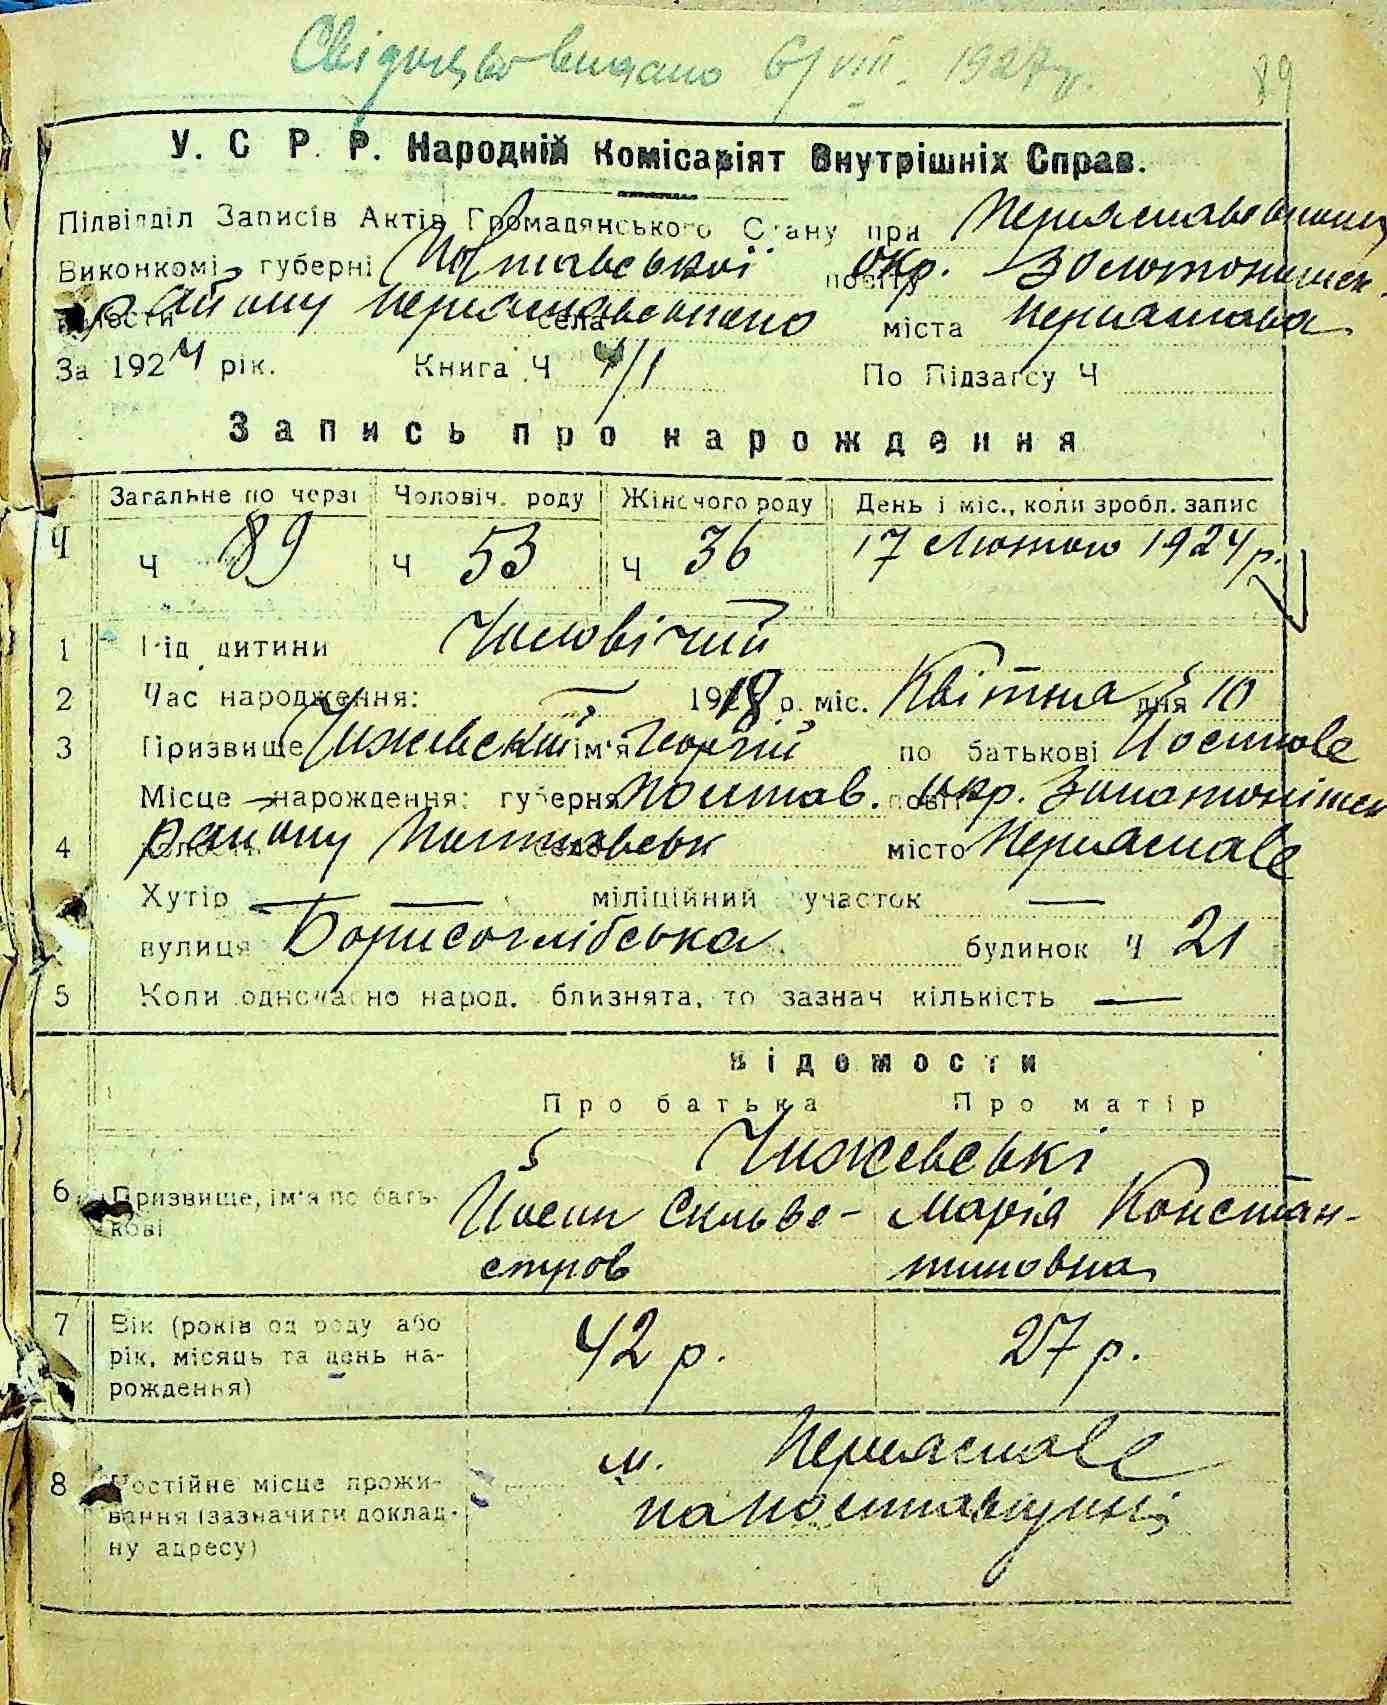 Свідоцтво видано 6/VIII. 1927 р.
89
У. С Р. Р. Народній Комісаріят Внутрішніх Справ.
Підвідділ Записів Актів Громадянського Стану при
Виконкомі, губерні Полтавської повіту окр. Золотонішськ.
волости району села міста Переяслава
За 1924 рік. Книга Ч 4/1 По Підзагсу Ч
Запись про нарождення
Загальне по черзі Чоловіч. роду Жіночого роду День і міс., коли зробл. запис
Ч Ч 89 Ч 53 Ч 36 17 Лютого 1924 р.
1 Рід дитини Чоловічий
2 Час народження: 1918 р. міс. Квітня дня 10
3 Призвище Чижевский ім'я Георгій по батькові Йосипов
Місце нарождення: губерня Полтав. повіт окр. Золотонішськ
4 волость району село місто Переяслав
Хутір — — міліційний участок —
вулиця Борисоглібська будинок Ч 21
5 Коли одночасно народ. близнята, то зазнач кількість —
Відомости
Про батька Про матір
Чижевські
6 Призвище, ім'я по бать- Йосип Сильве- Марія Констан-
кові стров тиновна
7 Вік (років од роду або 42 р. 27 р.
рік, місяць та день на-
рождення)
м. Переяслав
8 Постійне місце прожи-
вання (зазначити доклад- на Полтавщині
ну адресу)